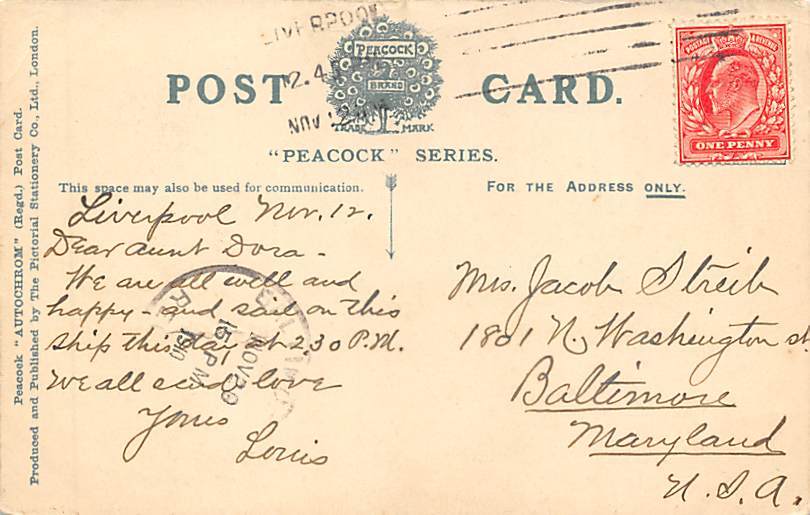 LIVERPOOL
2.4
NOV 12
PEACOCK
BRAND
TRADE MARK
POST CARD.
"PEACOCK" SERIES.
POSTAGE & REVENUE
ONE PENNY
This space may also be used for communication.
FOR THE ADDRESS ONLY.
Liverpool Nov. 12.
Dear Aunt Dora -
We are all well and
happy - and sail on this
ship this day at 2.30 P.M.
We all send love
Yours
Louis
Mrs. Jacob Streib
1801 N. Washington st
Baltimore
Maryland
U.S.A.
NOV 20
15 PM
1910
Peacock "AUTOCHROM" (Regd.) Post Card.
Produced and Published by The Pictorial Stationery Co., Ltd., London.